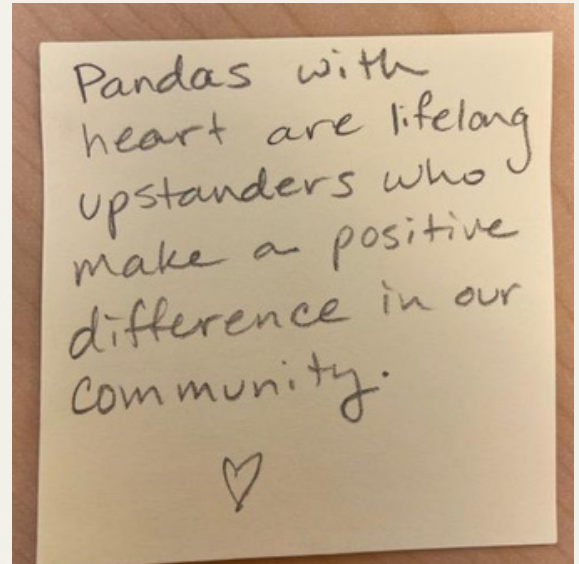 Pandas with
heart are lifelong
upstanders who
make a positive
difference in our
community.